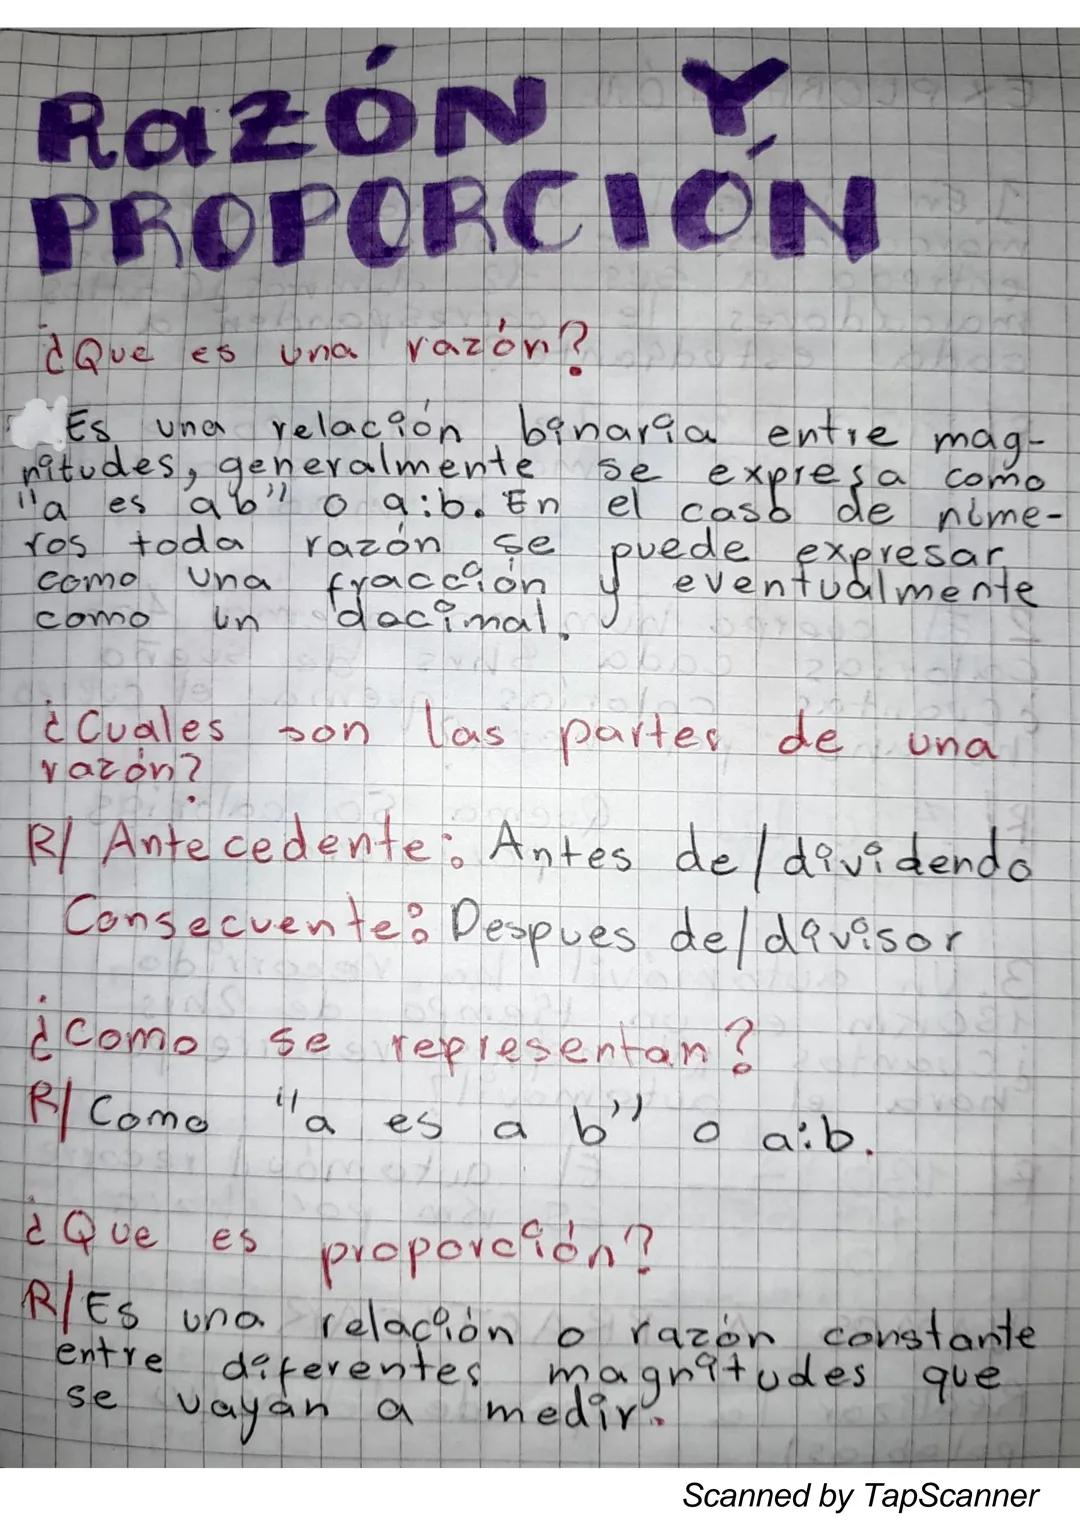 RazÓN Y
PROPORCIÓN
¿Que es una razón?
Es una relación binaria entre mag-
nitudes, generalmente se expresa como
"a es ab" o a:b. En el caso de núme-
ros toda razón se puede expresar
como una fracción y eventualmente
como un dacimal.
¿Cuales son las partes de una
razón?
R/ Antecedente: Antes de/dividendo
Consecuente: Despues de/divisor
¿Como se representan?
R/ Como "a es a b" o a:b.
¿Que es proporción?
R/ Es una relación o razón constante
entre diferentes magnitudes que
se vayan a medir.
Scanned by TapScanner